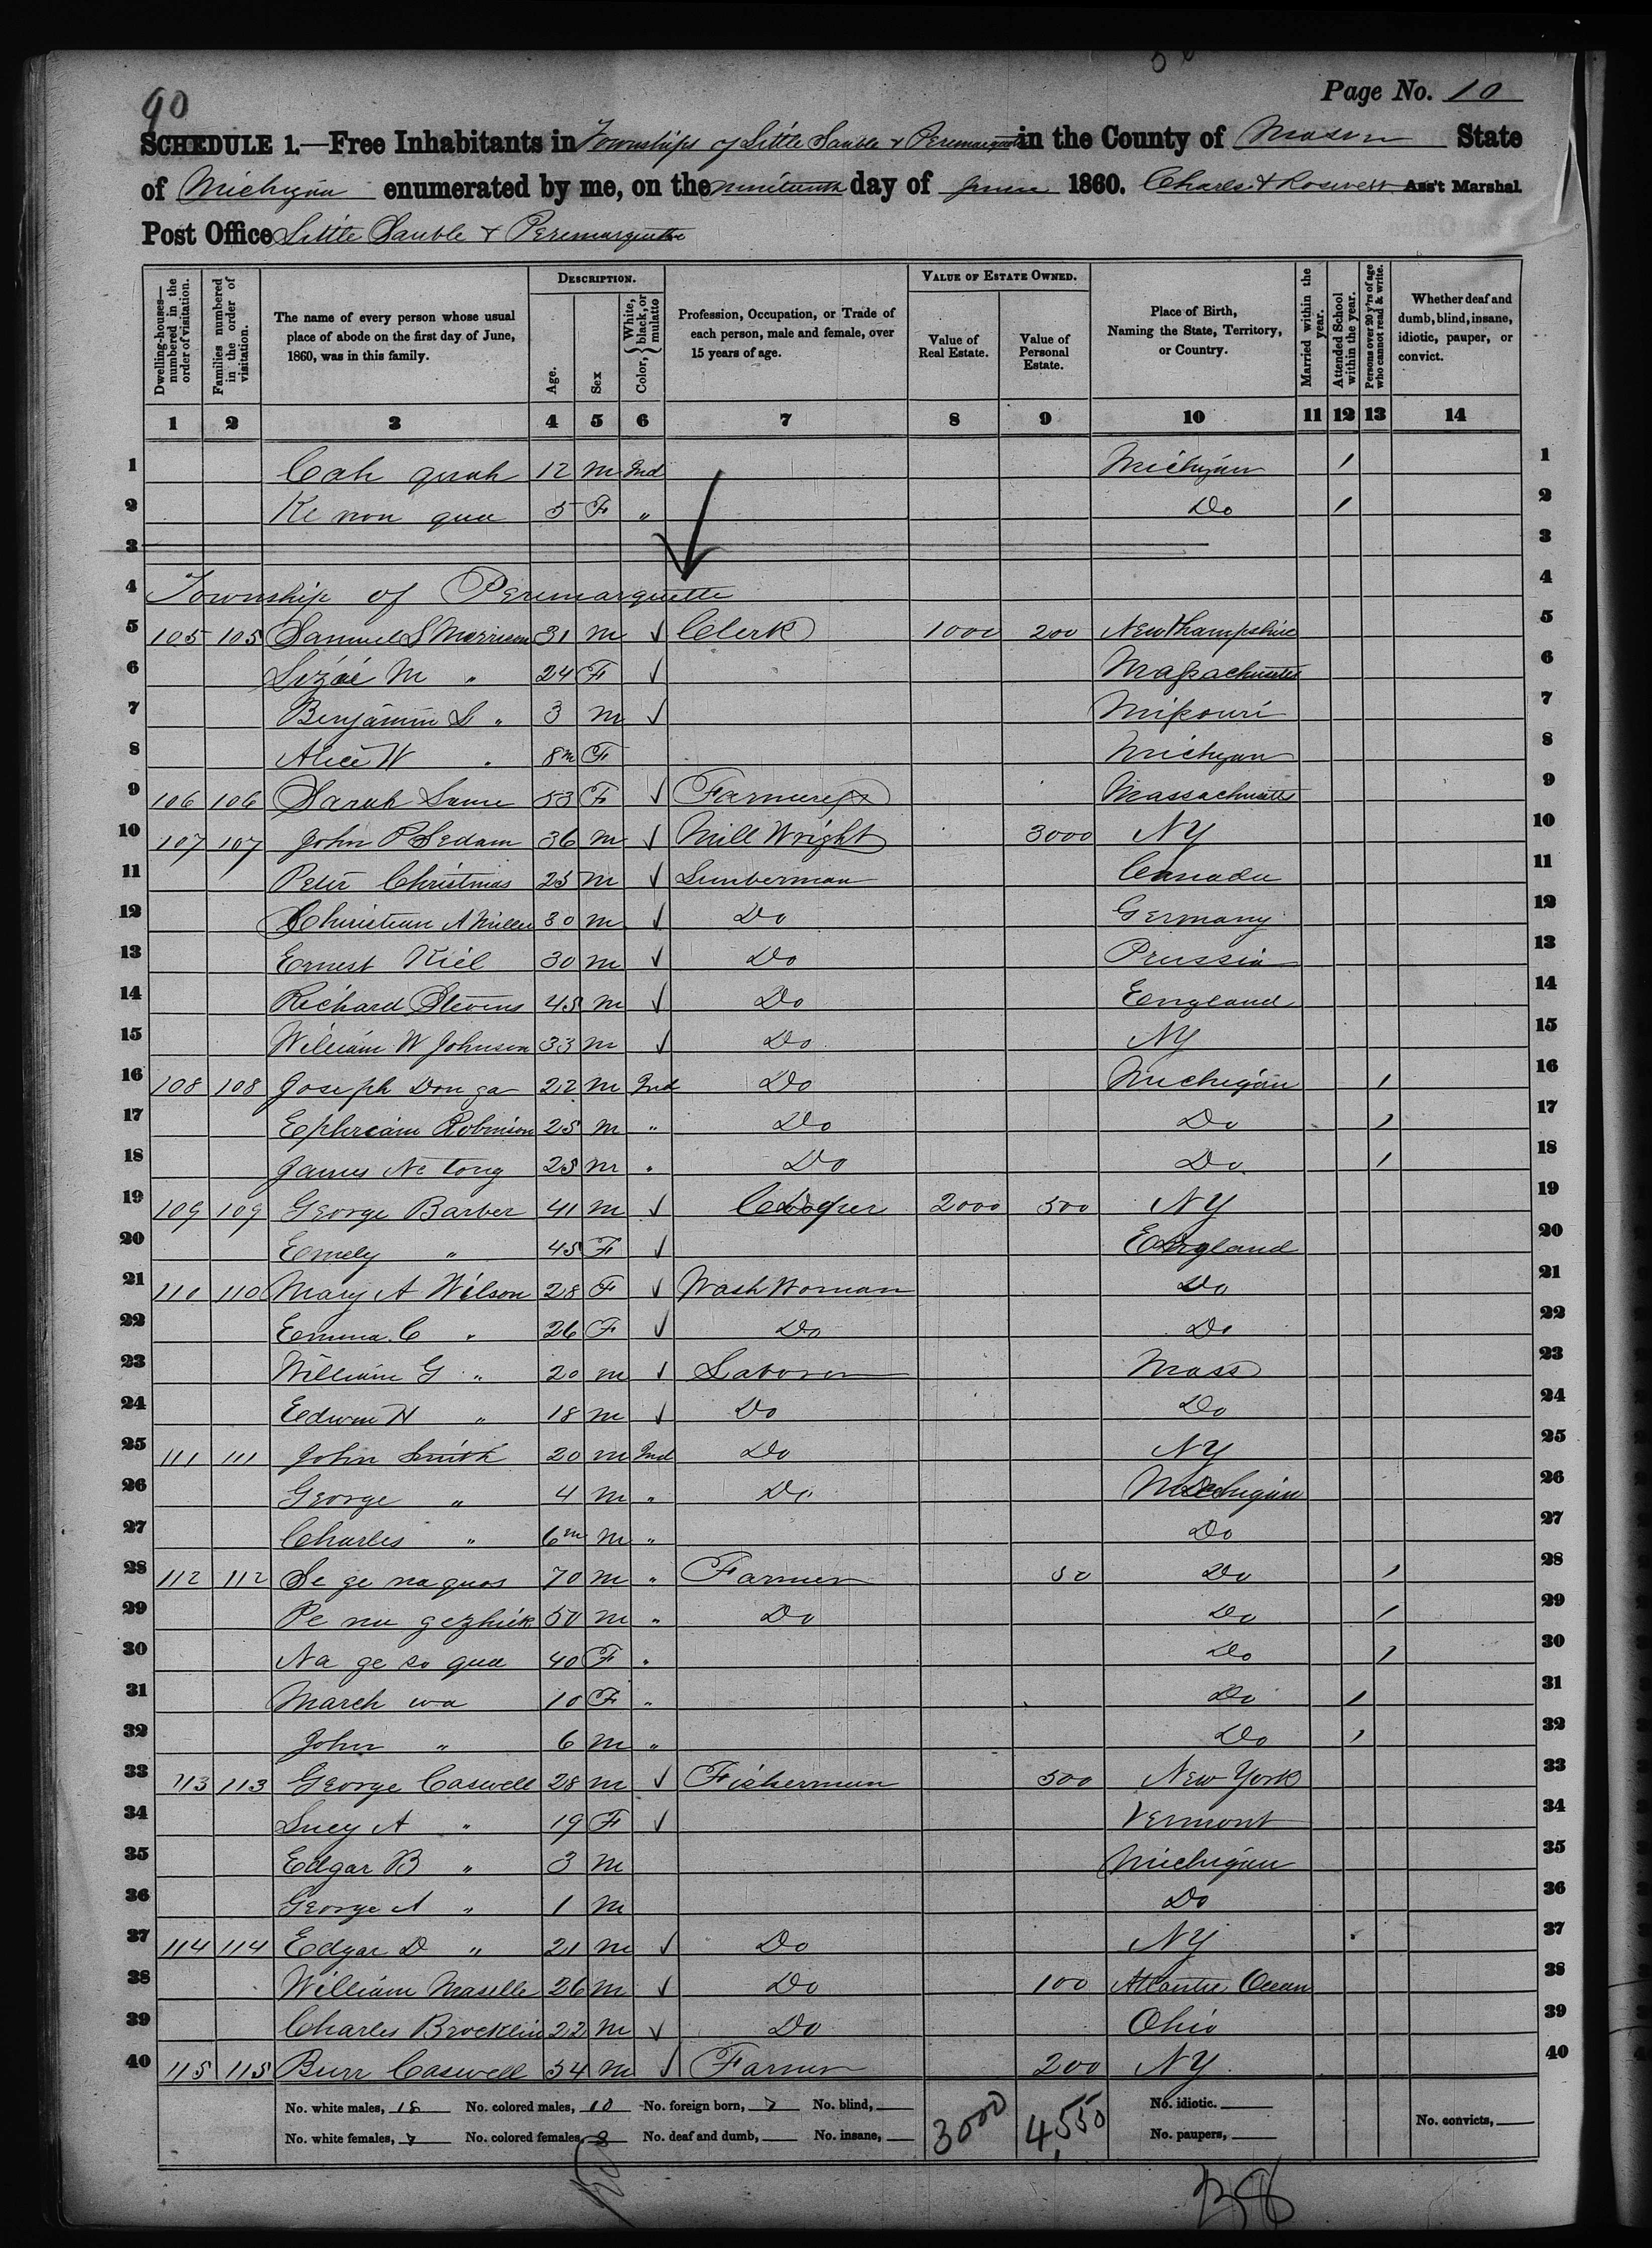 90
Page No. 10
SCHEDULE 1.—Free Inhabitants in Townships of Little Sauble & Peremarquette in the County of Mason State
of Michigan enumerated by me, on the nineteenth day of June 1860. Ass't Marshal.
Post Office Little Sauble & Peremarquette
Dwelling-houses—numbered in the order of visitation.
Families numbered in the order of visitation.
The name of every person whose usual place of abode on the first day of June, 1860, was in this family.
DESCRIPTION.
Age.
Sex
Color, {White, black, or mulatto
Profession, Occupation, or Trade of each person, male and female, over 15 years of age.
VALUE OF ESTATE OWNED.
Value of Real Estate.
Value of Personal Estate.
Place of Birth, Naming the State, Territory, or Country.
Married within the year.
Attended School within the year.
Persons over 20 y'rs of age who cannot read & write.
Whether deaf and dumb, blind, insane, idiotic, pauper, or convict.
1 2 3 4 5 6 7 8 9 10 11 12 13 14
1 Cah 12 m Ind Michigan / 1
2 Ke non qua 5 F " Do / 2
3 3
4 Township of Peremarquette 4
5 105 105 Samuel S Morrison 31 m ✓ Clerk 1000 200 New Hampshire 5
6 Lizzie M " 24 F ✓ Massachusetts 6
7 Benjamin S " 3 m ✓ Missouri 7
8 Alice W " 8m F Michigan 8
9 106 106 Sarah 53 F ✓ Farmeress Massachusetts 9
10 107 107 John P Sedam 36 m ✓ Mill Wright 3000 NY 10
11 Peter Christmas 25 m ✓ Lumberman Canada 11
12 Christian A Miller 30 m ✓ Do Germany 12
13 Ernest Kiel 30 m ✓ Do Prussia 13
14 Richard Stevens 45 m ✓ Do England 14
15 William W Johnson 33 m ✓ Do NY 15
16 108 108 Joseph Don ga 22 m Ind Do Michigan / 16
17 Ephriam Robinson 25 m " Do Do / 17
18 James Ne tong 25 m " Do Do / 18
19 109 109 George Barber 41 m ✓ Cooper 2000 500 NY 19
20 Emely " 45 F ✓ England 20
21 110 110 Mary A Wilson 28 F ✓ Wash Woman Do 21
22 Emma C " 26 F ✓ Do Do 22
23 William G " 20 m ✓ Laborer Mass 23
24 Edwin H " 18 m ✓ Do Do 24
25 111 111 John Smith 20 m Ind Do NY 25
26 George " 4 m " Do Michigan 26
27 Charles " 6m m " Do 27
28 112 112 Se ge na quas 70 m " Farmer 50 Do / 28
29 Pe nu gezhick 50 m " Do Do / 29
30 Na ge so qua 40 F " Do / 30
31 March wa 10 F " Do / 31
32 John " 6 m " Do / 32
33 113 113 George Caswell 28 m ✓ Fisherman 500 New York 33
34 Lucy A " 19 F ✓ Vermont 34
35 Edgar B " 3 m Michigan 35
36 George A " 1 m Do 36
37 114 114 Edgar D " 21 m ✓ Do NY 37
38 William Maselle 26 m ✓ Do 100 Atlantic Ocean 38
39 Charles Brocklin 22 m ✓ Do Ohio 39
40 115 115 Burr Caswell 54 m ✓ Farmer 200 NY 40
No. white males, 18 No. colored males, 10 No. foreign born, 7 No. blind, 3000 4,550 No. idiotic. No. convicts,
No. white females, 7 No. colored females, 3 No. deaf and dumb, No. insane, No. paupers,
38